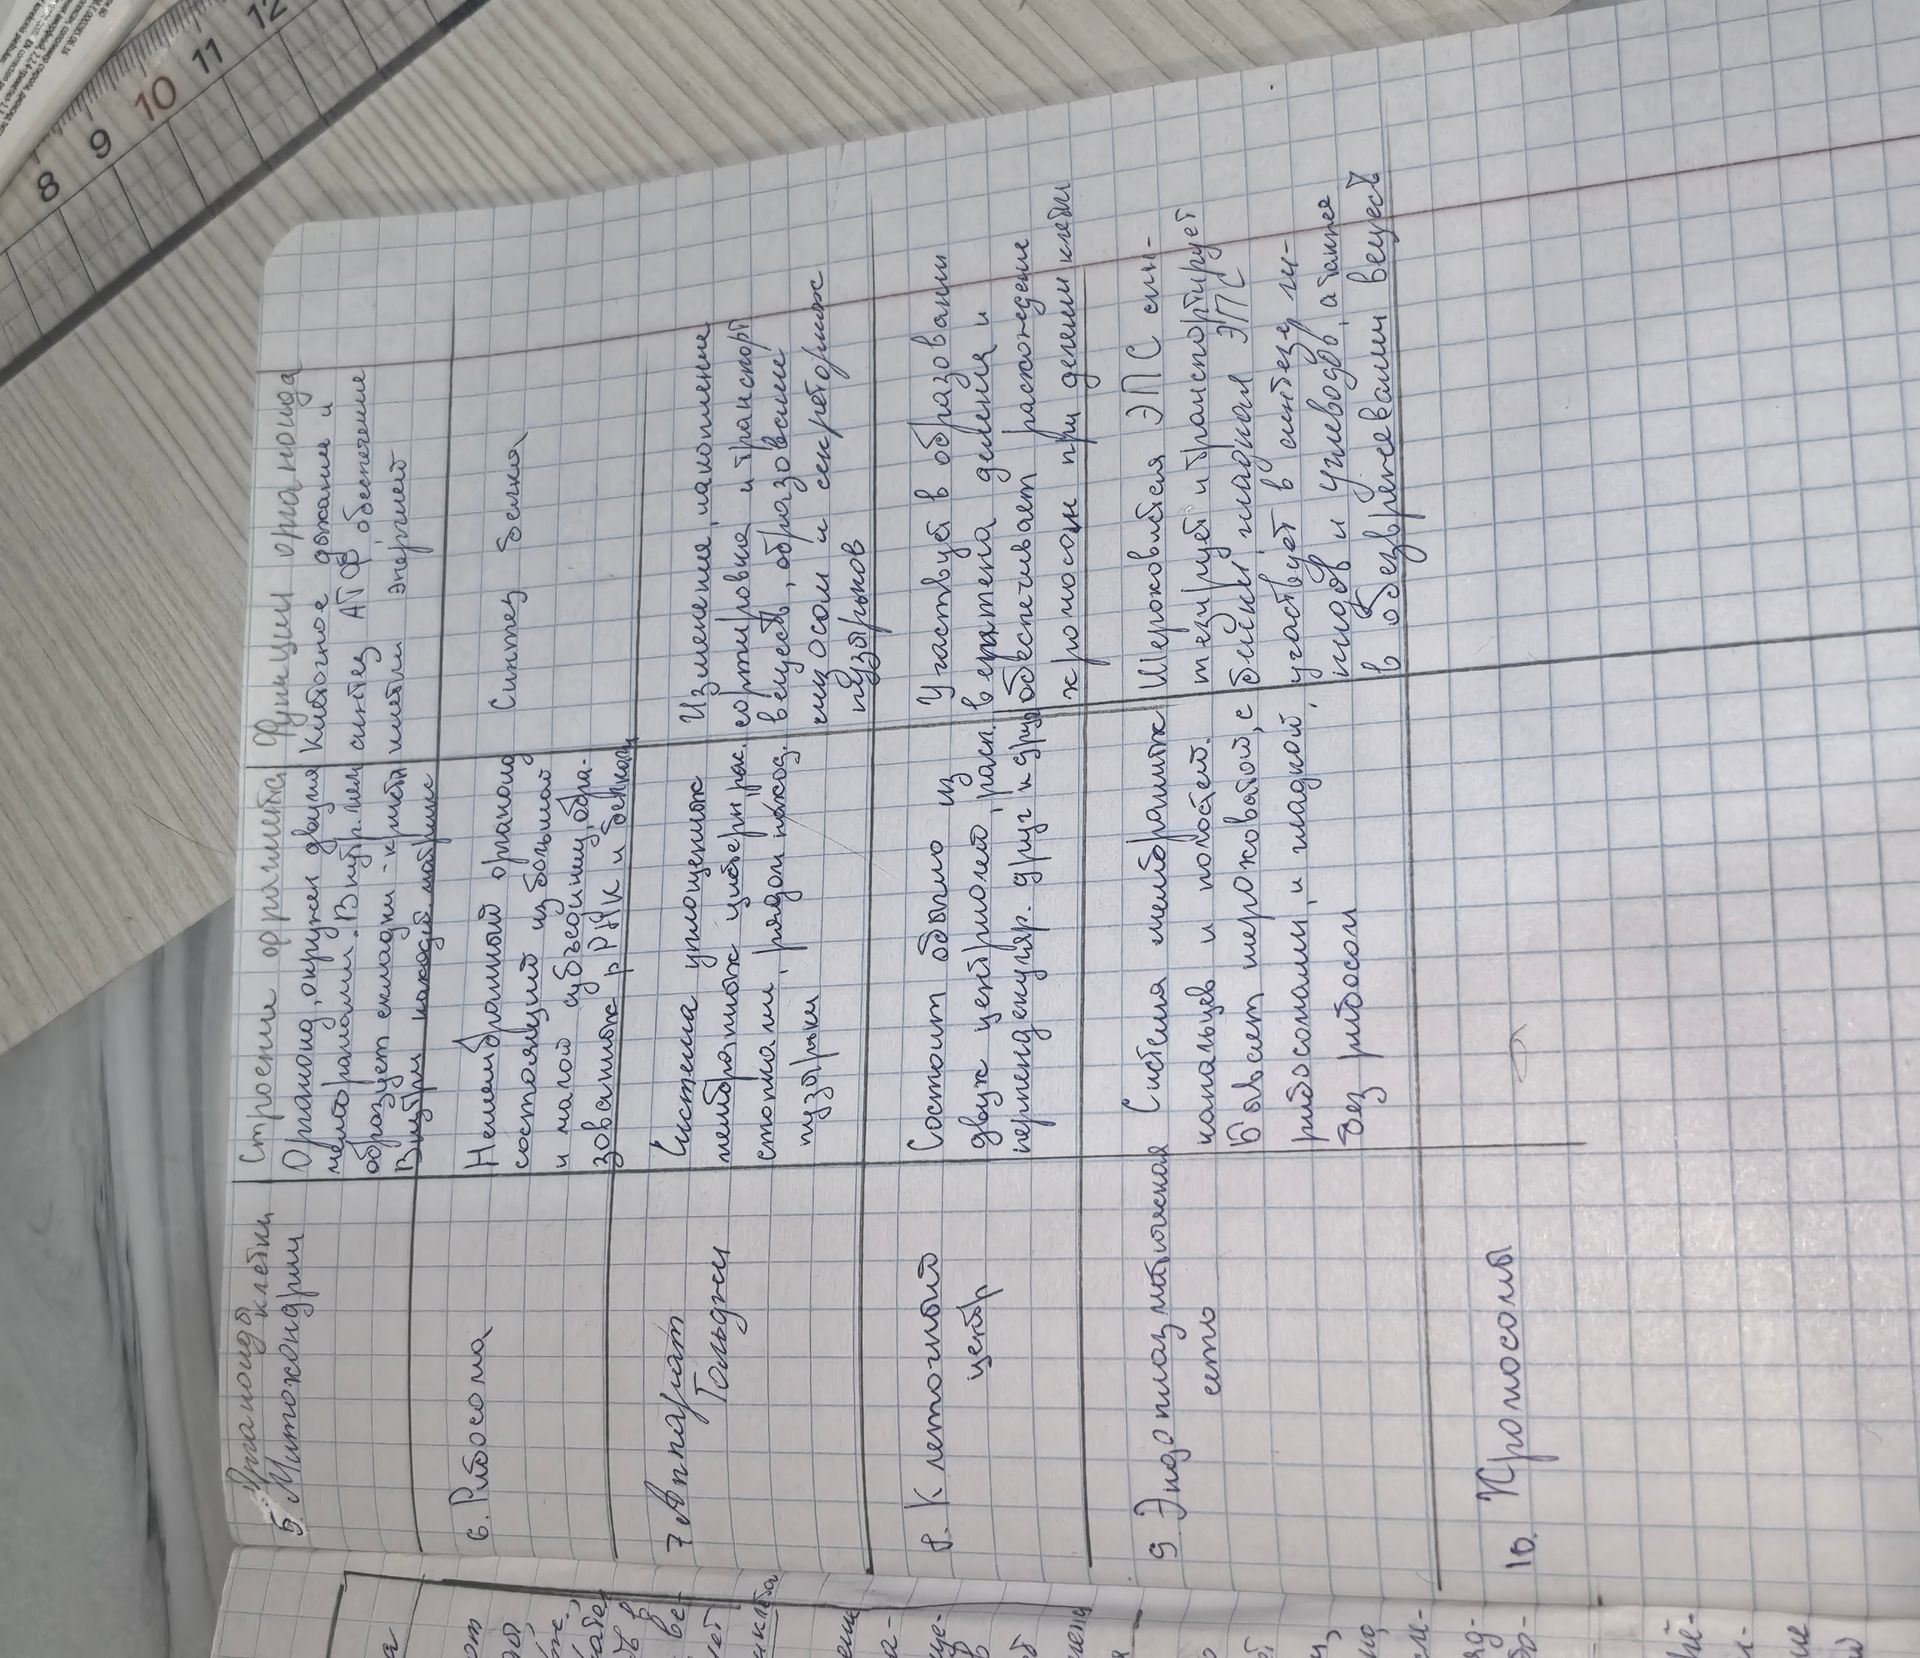 Органоиды клетки
Строение органоида
Функции органоида
5. Митохондрии
Органоид, окружен двумя
мембранами. Внутр. мем
образует складки - кристы
Внутри находит. матрикс
Клеточное дыхание и
синтез АТФ обеспечение
клетки энергией
6. Рибосома
Немембранный органоид
состоящий из большой
и малой субъединиц, обра-
зованных рРНК и белком
Синтез белка
7 Аппарат
Гольджи
Система уплощенных
мембранных цистерн рас.
стопками, рядом наход.
пузырьки
Изменение, накопление,
сортировка и транспорт
веществ, образование
лизосом и секреторных
пузырьков
8. Клеточный
центр
Состоит обычно из
двух центриолей, расп.
перпендикуляр. друг к другу
Участвует в образовании
веретена деления и
обеспечивает расхождение
хромосом при делении клетки
9 Эндоплазматическая
сеть
Система мембранных
канальцев и полостей.
Бывает шероховатой, с
рибосомами, и гладкой,
без рибосом
Шероховатая ЭПС син-
тезирует и транспортирует
белки, гладкая ЭПС
участвует в синтезе ли-
пидов и углеводов, а также
в обезвреживании веществ
10. Хромосомы
8 9 10 11 12